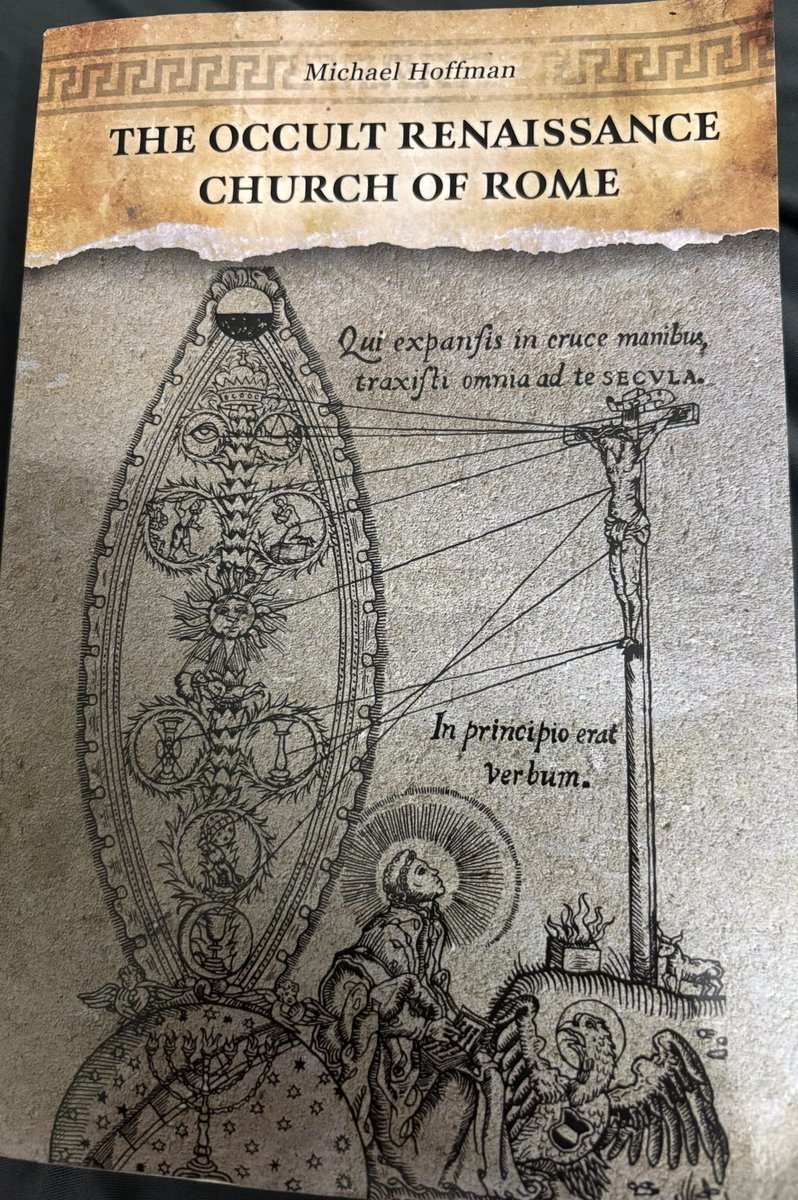 Michael Hoffman
THE OCCULT RENAISSANCE
CHURCH OF ROME
Qui expanſis in cruce manibus,
traxiſti omnia ad te SECVLA.
In principio erat
verbum.